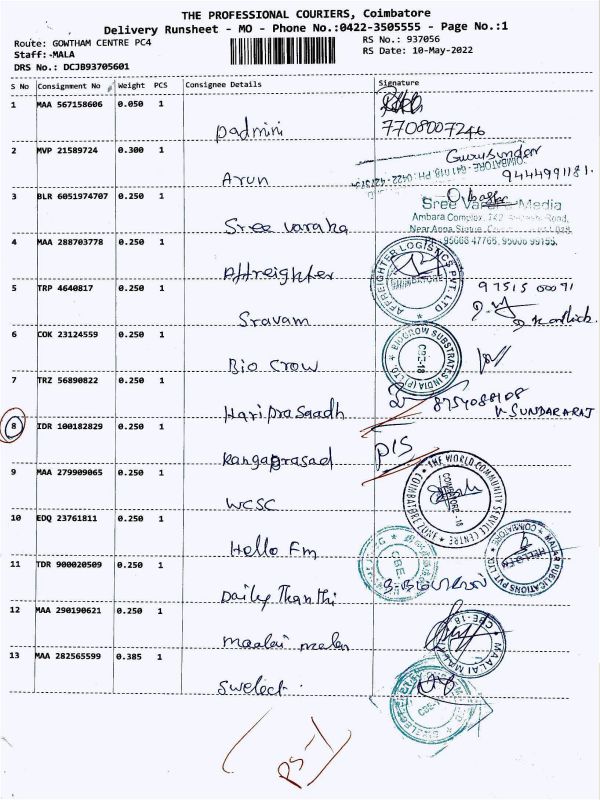 THE PROFESSIONAL COURIERS, Coimbatore
Delivery Runsheet - MO - Phone No.:0422-3505555 - Page No.:1
Route: GOWTHAM CENTRE PC4
RS No.: 937056
Staff: MALA
RS Date: 10-May-2022
DRS No.: DCJB93705601
S No Consignment No Weight PCS Consignee Details Signature
1 MAA 567158606 0.050 1
padmini 7708007246
2 MVP 21589724 0.300 1
Gurusundar
Arun 9444991181.
3 BLR 6051974707 0.250 1
Sree Media
Ambara Complex, 742
Sree varaha
4 MAA 288703778 0.250 1
95668 47765, 95006 99155.
Affreighter
AFFREIGHTER LOGISTICS PVT. LTD
COIMBATORE
5 TRP 4640817 0.250 1
97515 00071
Sravam
6 COK 23124559 0.250 1
BIOGROW SUBSTRATES INDIA (P) LTD
CBE-18
Bio Crow
7 TRZ 56890822 0.250 1
8754088108
Hariprasaadh V SUNDARARAJ
8 IDR 100182829 0.250 1
Rangaprasad P1S
9 MAA 279909065 0.250 1
THE WORLD COMMUNITY SERVICE CENTRE
COIMBATORE ZONE
COIMBATORE - 18
WCSC
10 EDQ 23761811 0.250 1
Hello Fm
MALAR PUBLICATIONS PVT LTD
COIMBATORE
HELLO FM
11 TDR 900020509 0.250 1
CBE
Daily Thanthi
12 MAA 290190621 0.250 1
CBE-18
MAALAI
maalai malar
13 MAA 282565599 0.385 1
Swelect
PS-1